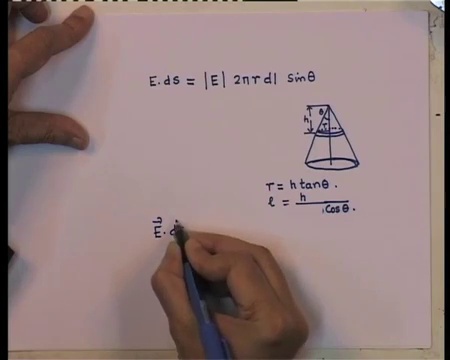 E.ds = |E| 2πr dl sinθ
θ
h
r
r = h tanθ.
l = h / cosθ.
E⃗. d